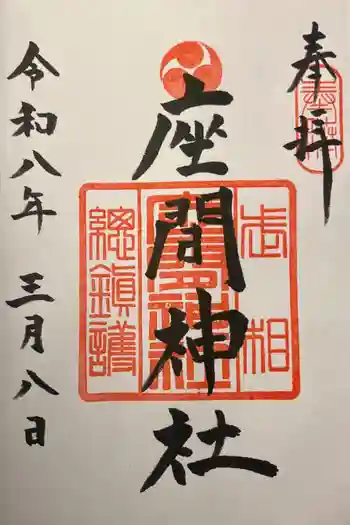 奉拝
武相
座間神社
總鎮護
座間神社
令和八年 三月八日